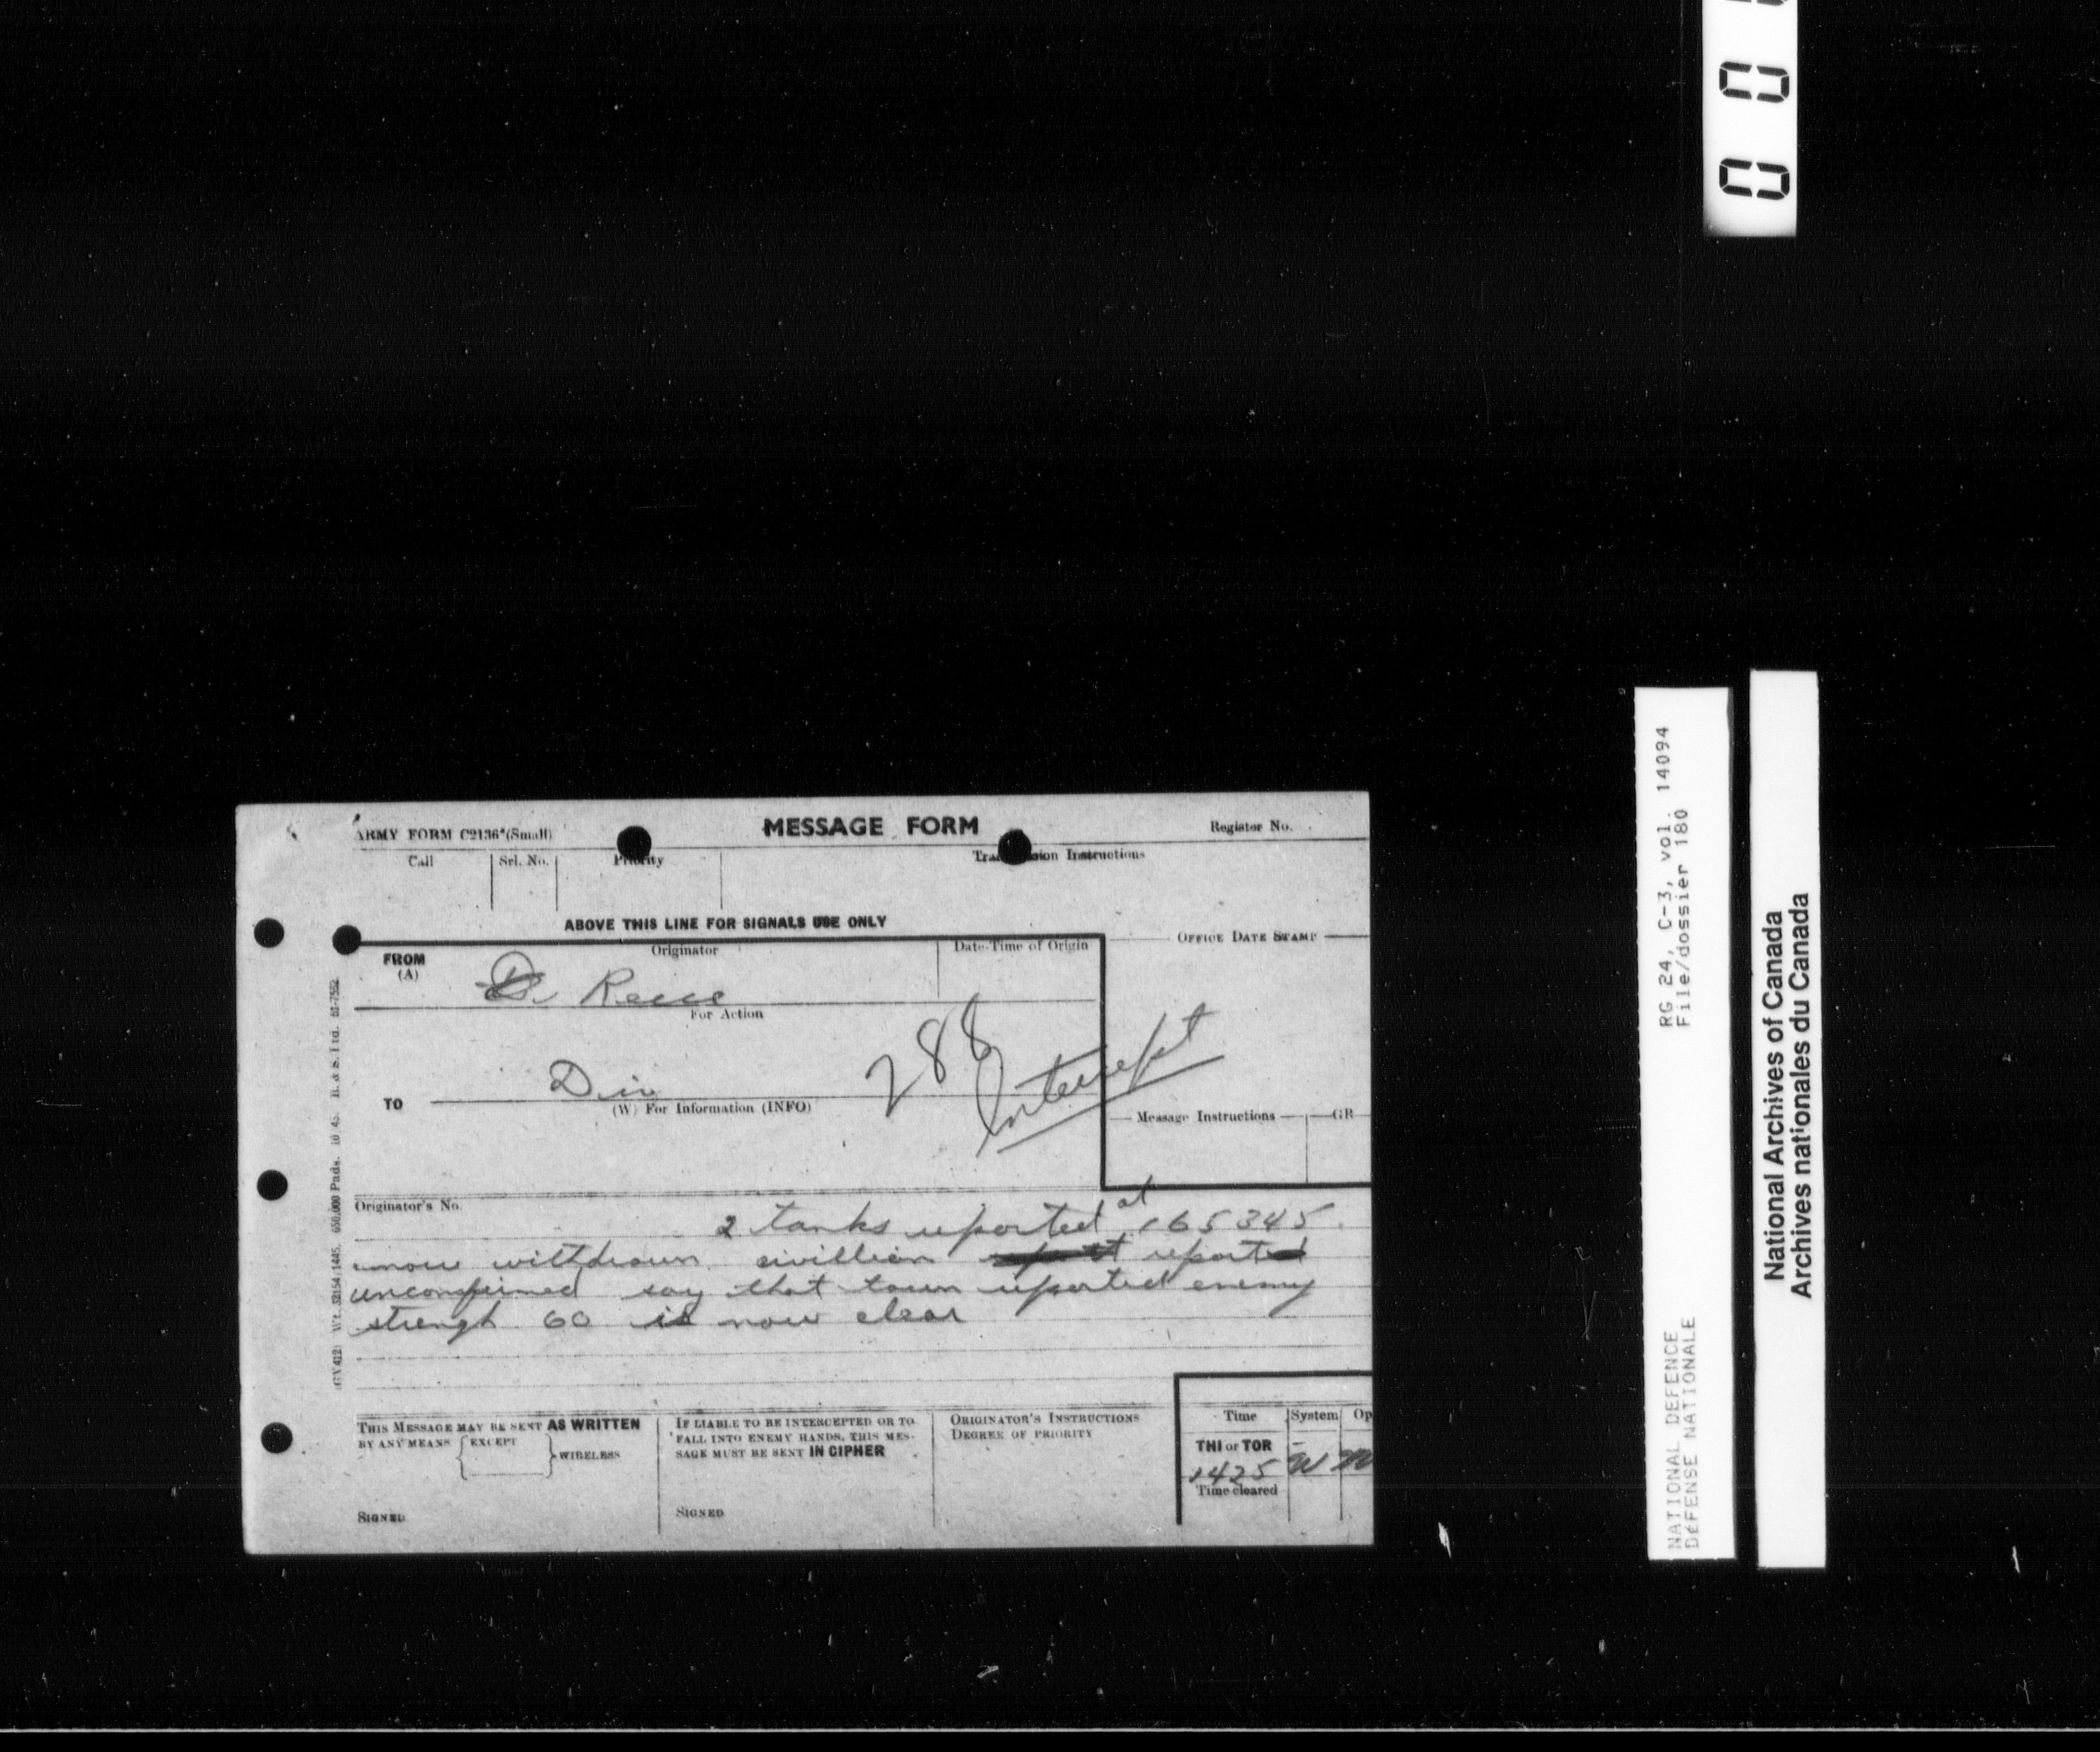 0 0
ARMY FORM C2136*(Small)
MESSAGE FORM
Register No.
Call
Srl. No.
Priority
Transmission Instructions
ABOVE THIS LINE FOR SIGNALS USE ONLY
FROM
(A)
Originator
Date-Time of Origin
OFFICE DATE STAMP
Recce
For Action
288
Intercept
TO
Div
(W) For Information (INFO)
Message Instructions
GR
Originator's No.
2 tanks reported at 165345.
now withdrawn. civillian report
unconfirmed say that town reported enemy
strengh 60 is now clear
THIS MESSAGE MAY BE SENT AS WRITTEN
BY ANY MEANS { EXCEPT } WIRELESS
SIGNED
IF LIABLE TO BE INTERCEPTED OR TO
FALL INTO ENEMY HANDS, THIS MES-
SAGE MUST BE SENT IN CIPHER
SIGNED
ORIGINATOR'S INSTRUCTIONS
DEGREE OF PRIORITY
Time
System
Op
THI or TOR
1425
W
Time cleared
650,000 Pads.
B. & S. Ltd.
RG 24, C-3, vol. 14094
File/dossier 180
NATIONAL DEFENCE
DÉFENSE NATIONALE
National Archives of Canada
Archives nationales du Canada